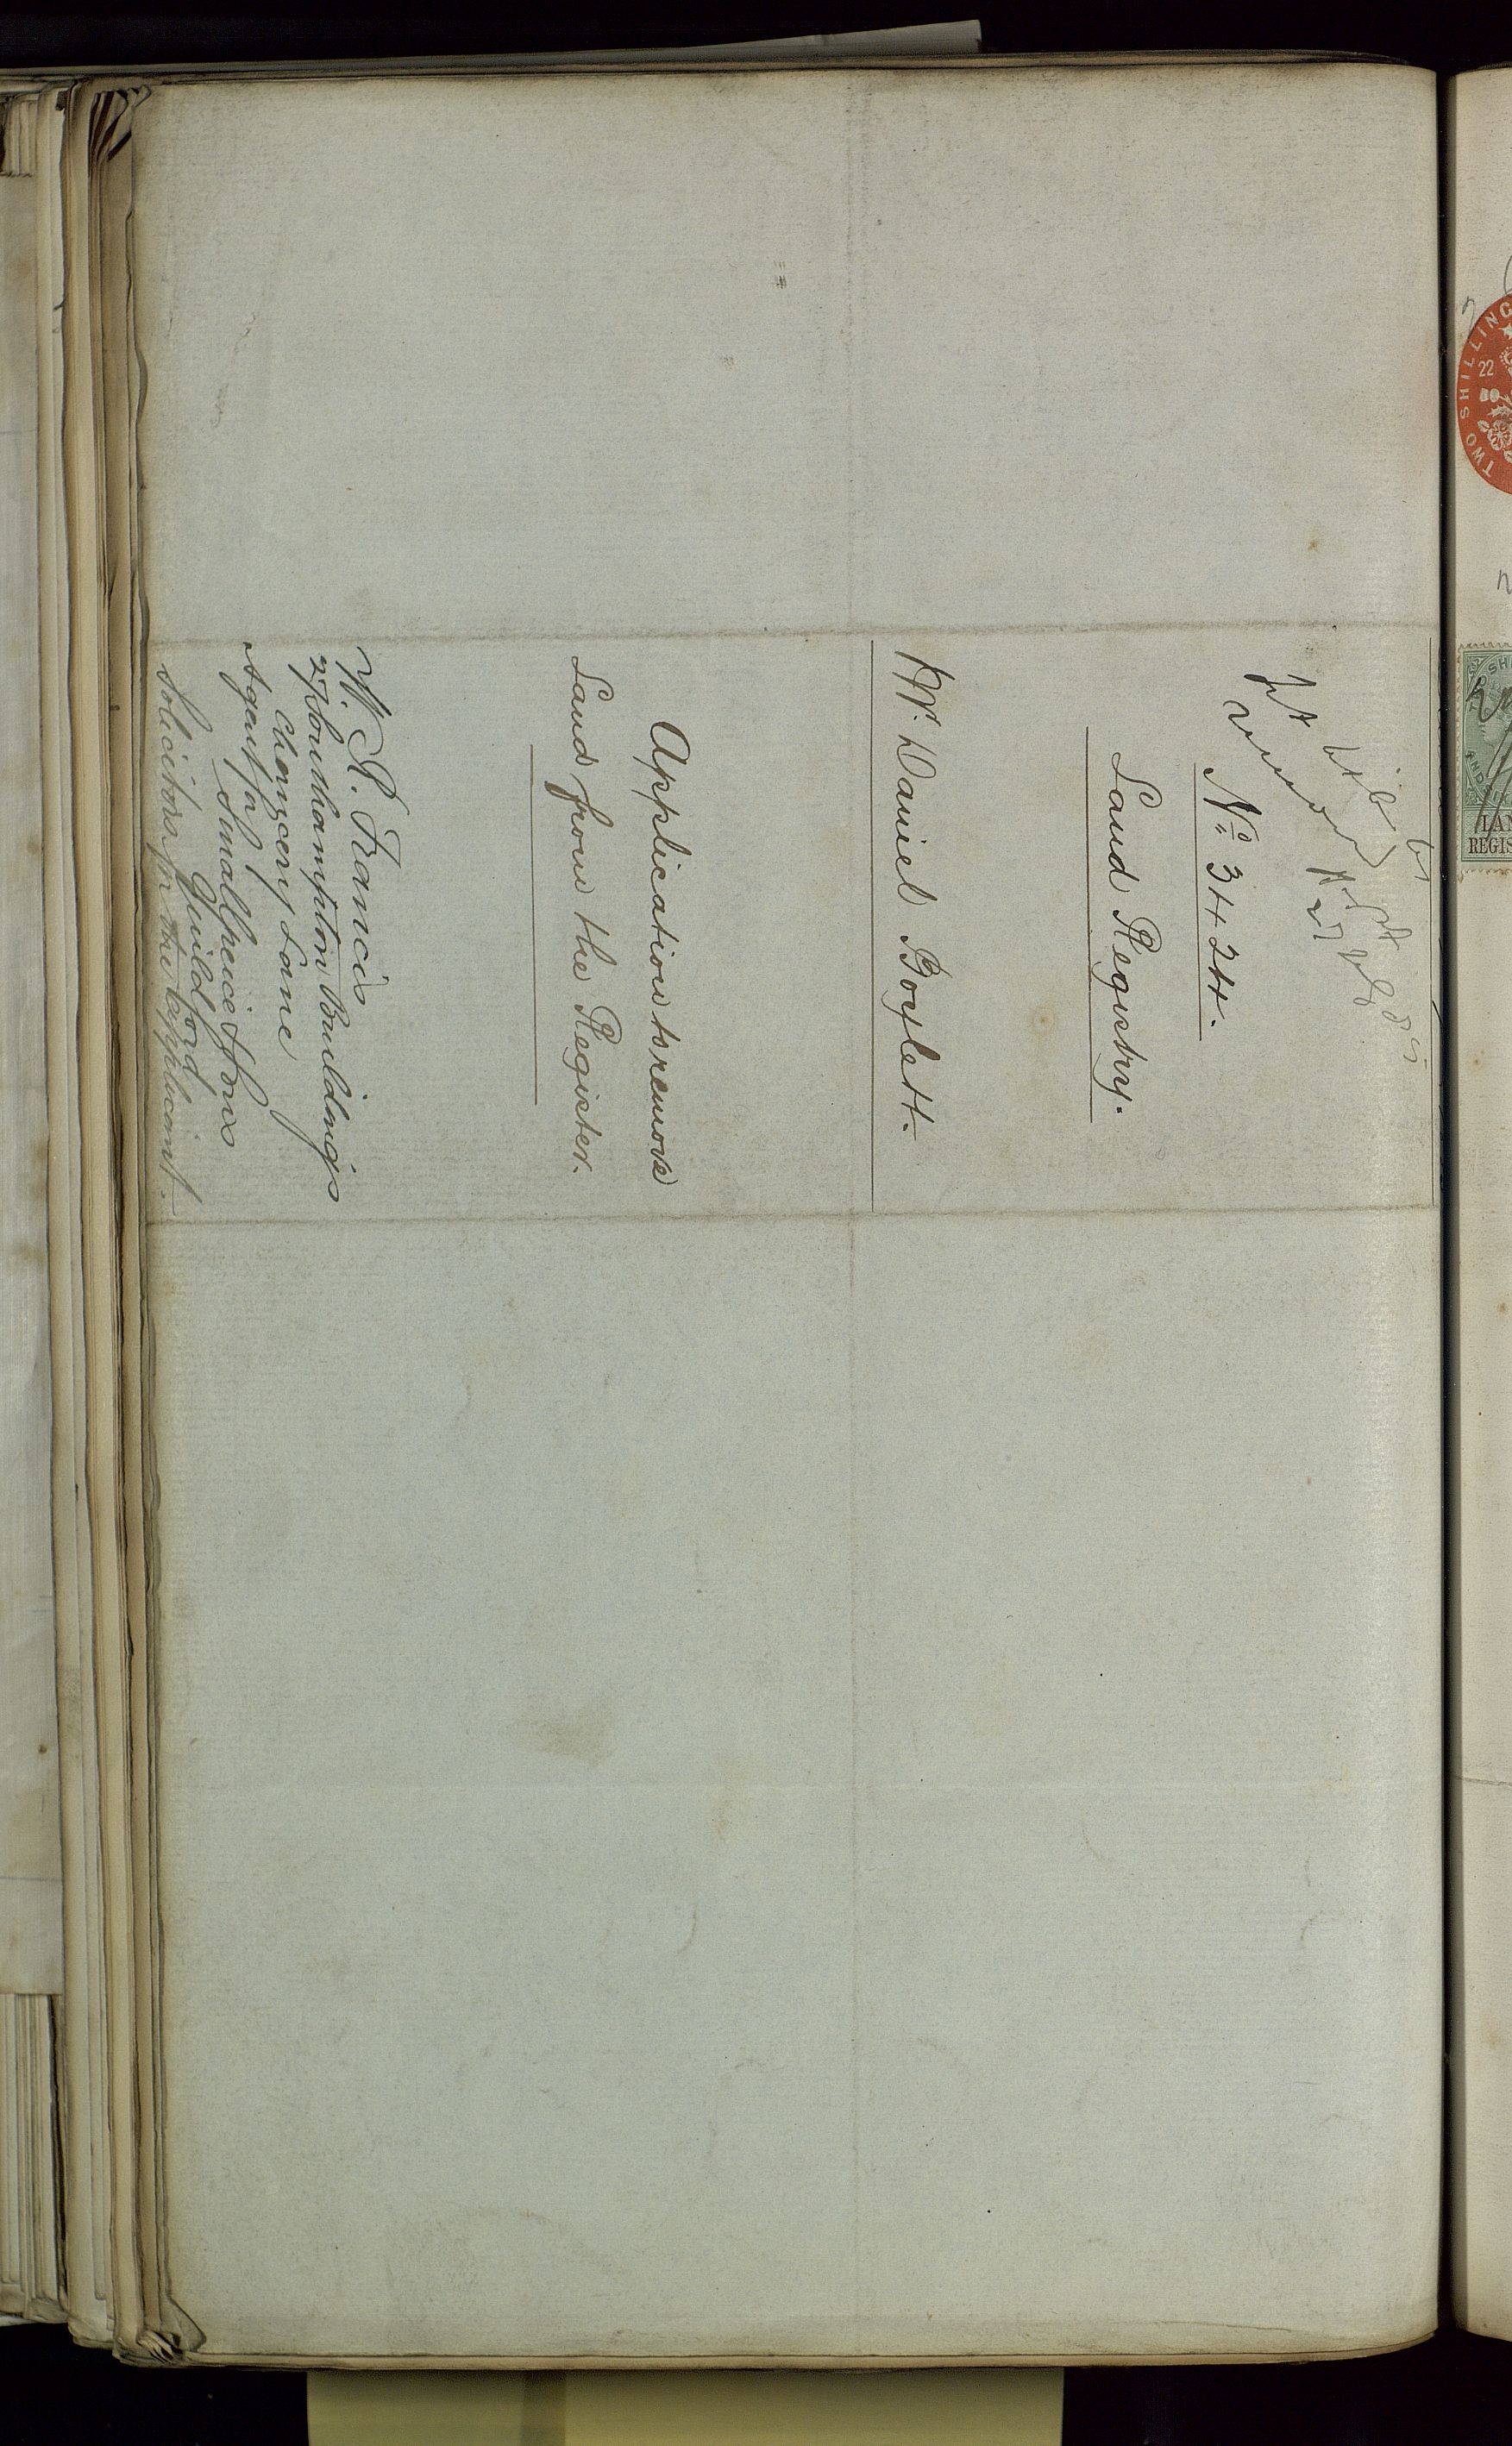 Nº 3424.
Land Registry.
Mr. Daniel Boylett.
Application to remove
Land from the Register.
W. R. Francis
27 Southampton Buildings
Chancery Lane
Agent for
Smallpeice & Sons
Guildford
Solicitors for the Applicant.
TWO SHILLING
22
LAN
REGIS